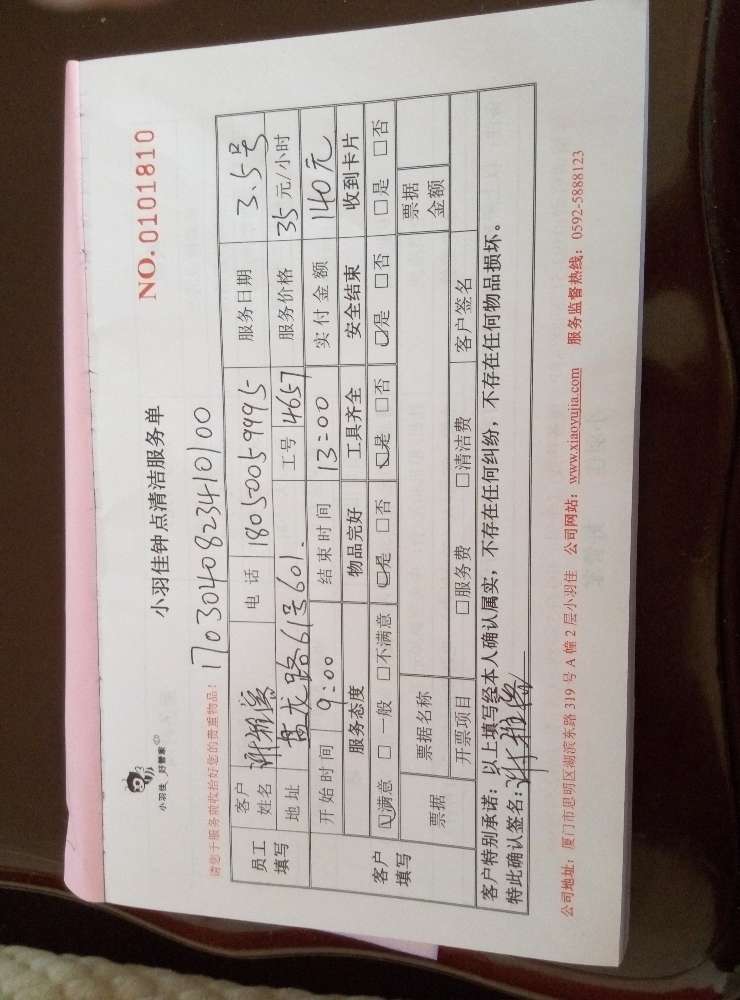 小羽佳 好管家
小羽佳钟点清洁服务单
NO. 0101810
请您于服务前收拾好您的贵重物品!
1703040823410100
员工填写 客户姓名 电话 18050059995 服务日期 3.5号
地址 路61号601. 工号 4657 服务价格 35元/小时
开始时间 9:00 结束时间 13:00 实付金额 140元
客户填写 服务态度 物品完好 工具齐全 安全结束 收到卡片
☑满意 □一般 □不满意 ☑是 □否 ☑是 □否 ☑是 □否 □是 □否
票据 票据名称 票据金额
开票项目 □服务费 □清洁费 客户签名
客户特别承诺:以上填写经本人确认属实,不存在任何纠纷,不存在任何物品损坏。
特此确认签名:
公司地址:厦门市思明区湖滨东路 319 号 A 幢 2 层小羽佳 公司网站:www.xiaoyujia.com 服务监督热线:0592-5888123